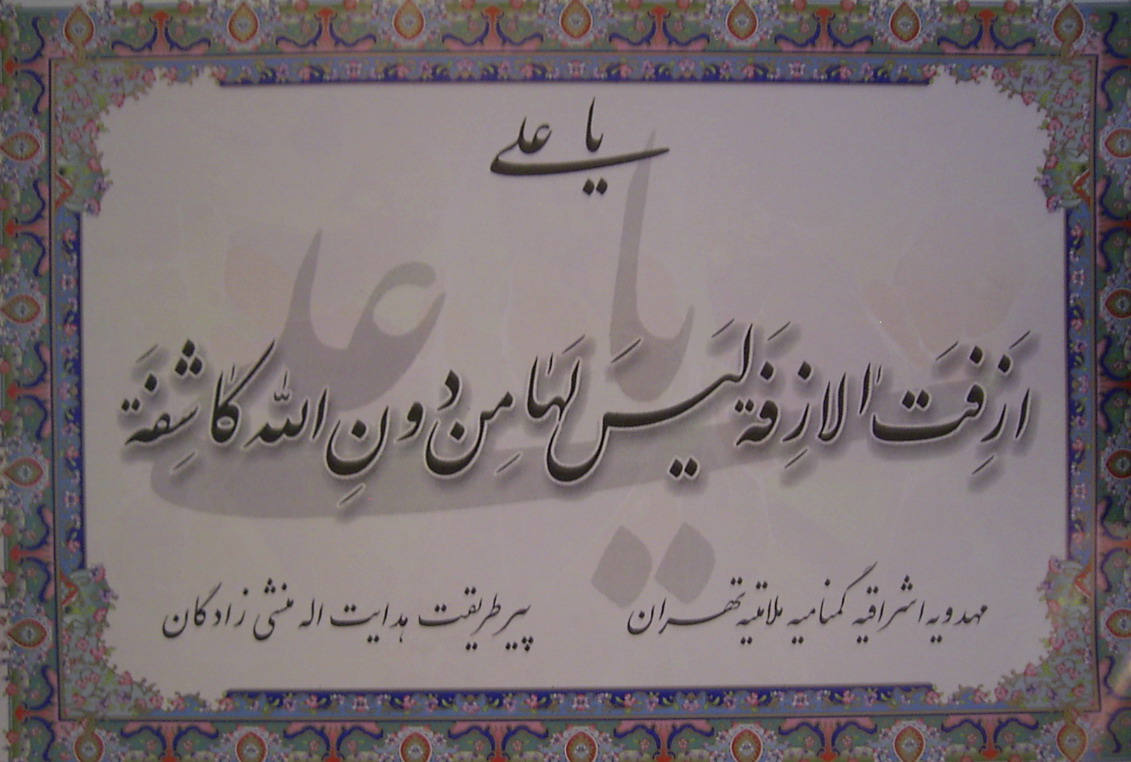 یا علی
اَزِفَتَ الاٰزِفَة لَیسَ لَهٰا مِن دونِ الله کاٰشِفَة
مهدویه اشراقیه گمنامیه ملامتیه تهران
پیر طریقت هدایت اله منشی زادگان